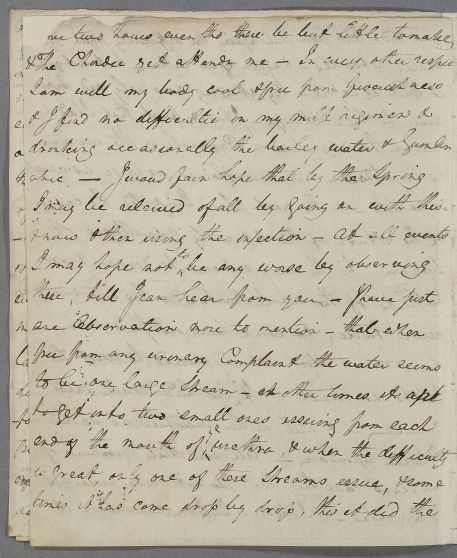 me two hours even tho there be but little to make,
& the Chordee yet attends me — In every other respec
I am well my body cool & free from feverishness
& I find no difficultie in my milk regimen &
drinking occasionally the barley water & Gumm
abic — I woud fain hope that by the Spring
I may be releived of all by going on with this
& now & then using the injection — At all events
I may hope not to be any worse by observing
these, till I can hear from you — I have just
one Observation more to mention — that when
free from any urinary Complaint the water seems
to be in one large Stream — at other times its apt
to get into two small ones issuing from each
end of the mouth of the urethra, & when the difficulty
is great only one of these Streams issue, & some
times it has come drop by drop, this it did the